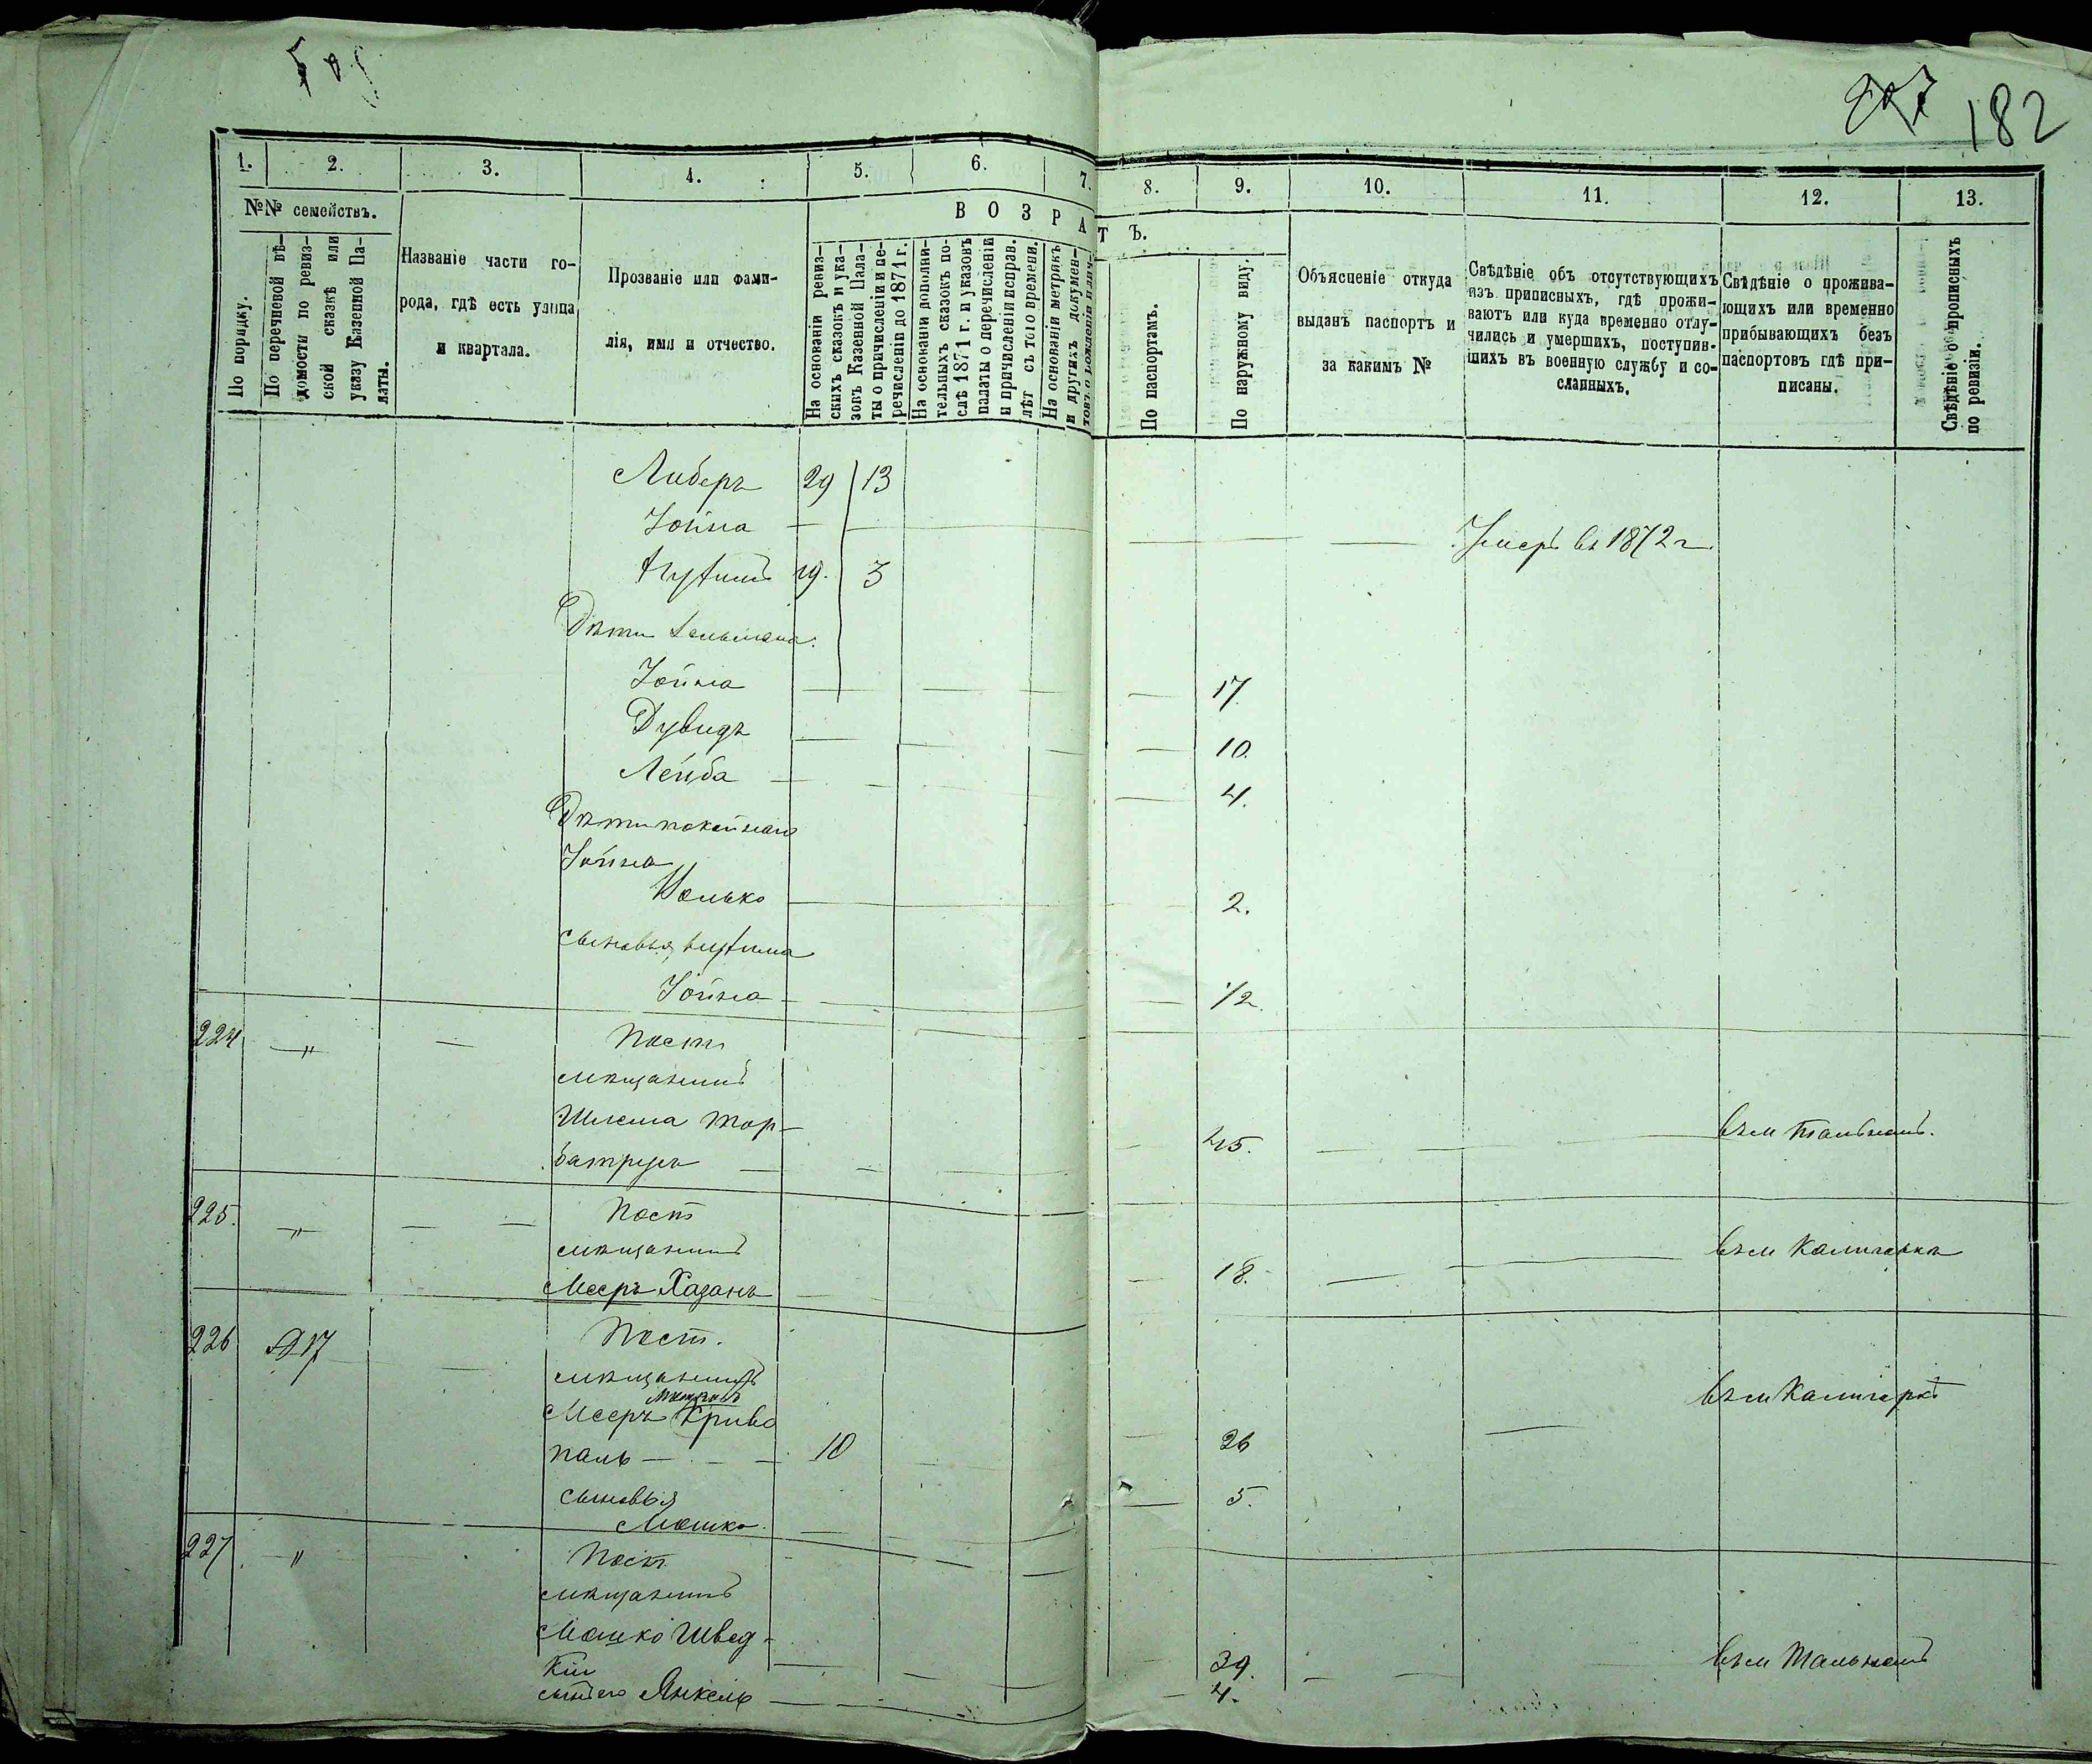 182
1. 2. 3. 4. 5. 6. 7. 8. 9. 10. 11. 12. 13.
№№ семействъ.
По порядку.
По перечневой вѣ-
домости по ревиз-
ской сказкѣ или
указу Казенной Па-
латы.
Названіе части го-
рода, гдѣ есть улица
и квартала.
Прозваніе или фами-
лія, имя и отчество.
ВОЗРАТЪ.
На основаніи ревиз-
скихъ сказокъ и ука-
зовъ Казенной Пала-
ты о причисленіи и пе-
речисленіи до 1871 г.
На основаніи дополни-
тельныхъ сказокъ по-
слѣ 1871 г. и указовъ
палаты о перечисленіи
и причисленіи исправ.
лѣт съ того времени.
На основаніи метрикъ
и другихъ докумен-
По паспортамъ.
По наружному виду.
Объясненіе откуда
выданъ паспортъ и
за какимъ №
Свѣдѣніе объ отсутствующихъ
изъ приписныхъ, гдѣ прожи-
ваютъ или куда временно отлу-
чились и умершихъ, поступив-
шихъ въ военную службу и со-
сланныхъ.
Свѣдѣніе о прожива-
ющихъ или временно
прибывающихъ безъ
паспортовъ гдѣ при-
писаны.
Свѣдѣніе о прописныхъ
по ревизіи.
Либеръ 29 13
Іойна — Умеръ въ 1872 г.
Нухимъ 19. 3
Дѣти
Іойна — 17
Дувидъ — 10.
Лейба — 4.
Дѣти покойнаго
Іойна
Волько — 2.
Сыновья Нухима
Іойна — 1/2
224 — " — Пост.
мѣщанинъ
Шлема Тор-
батрукъ — 45. — въ м Тальномъ.
225. — " — Пост
мѣщанинъ
Мееръ Хазанъ — 18. — въ м Калигоркѣ
226 17 — Пост.
мѣщанинъ
Мееръ Криво
паль — 10 — 26 — въ м Калигоркѣ
сыновья
Мошко — 5.
227 — " — Пост
мѣщанинъ
Мошко Швед-
кій — 39. — въ м Тальномъ
сынъ его Янкель — 4.